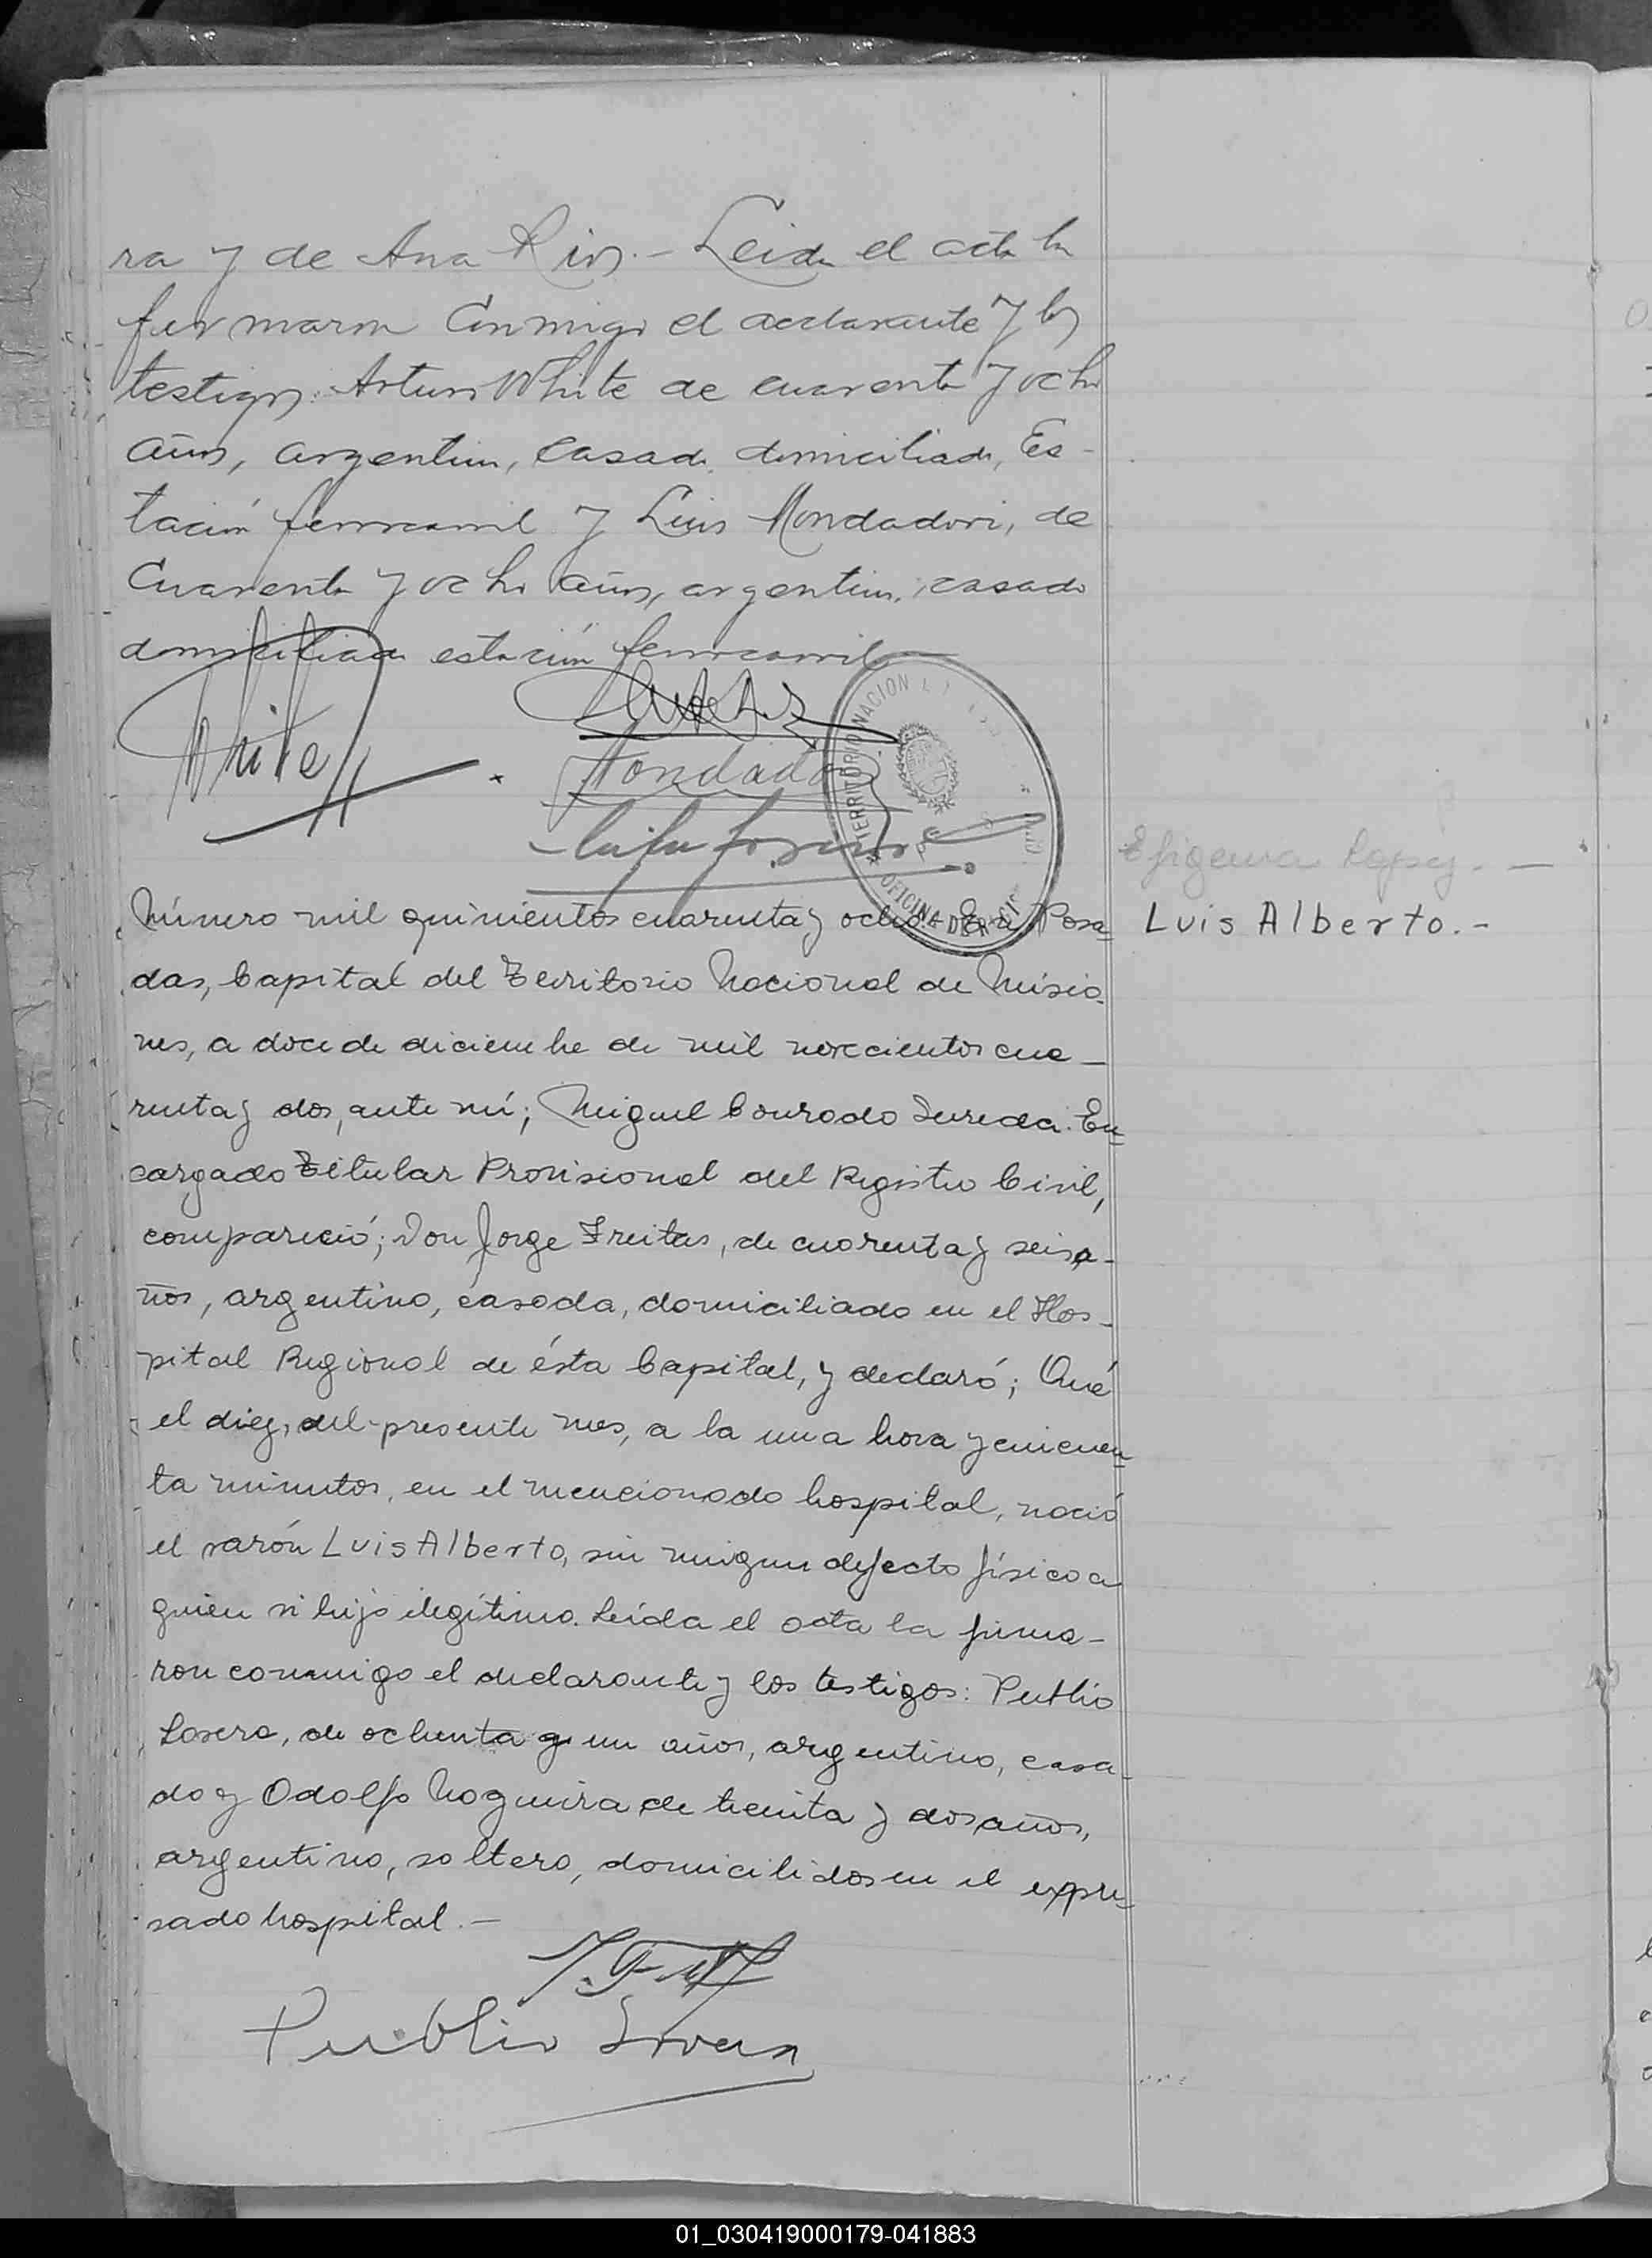 ra y de Ana Rios.- Leida el acta la
firmaron conmigo el declarante y los
testigos: Arturo White de cuarenta y ocho
años, argentino, casado, domiciliado, Es-
tación ferrocarril y Luis Mondadori, de
Cuarenta y ocho años, argentino, casado
domiciliado estación ferrocarril
White
Mondadori
TERRITORIO NACIONAL
OFICINA DE
Efigenia Lopez.-
Número mil quinientos cuarenta y ocho. En Posa-
Luis Alberto.-
das, Capital del Territorio Nacional de Misio-
nes, a doce de diciembre de mil novecientos cua-
renta y dos, ante mí; Miguel Conrado Sureda. En-
cargado Titular Provisional del Registro Civil,
compareció; Don Jorge Freitas, de cuarenta y seis a-
ños, argentino, casada, domiciliado en el Hos-
pital Regional de ésta Capital, y declaró; Qué
el diez, del presente mes, a la una hora y cincuen-
ta minutos, en el mencionado hospital, nació
el varón Luis Alberto, sin ningun defecto físico a
quien vi hijo ilegítimo. Leída el acta la firma-
ron conmigo el declarante y los testigos: Publio
Lovera, de ochenta y un años, argentino, casa-
do y Odolfo Nogueira de treinta y dos años,
argentino, soltero, domicilidos en el expre-
sado hospital.-
Publio Lovera
01_030419000179-041883